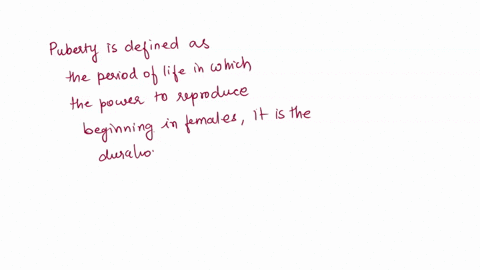 Puberty is defined as
the period of life in which
the power to reproduce
beginning in females, it is the